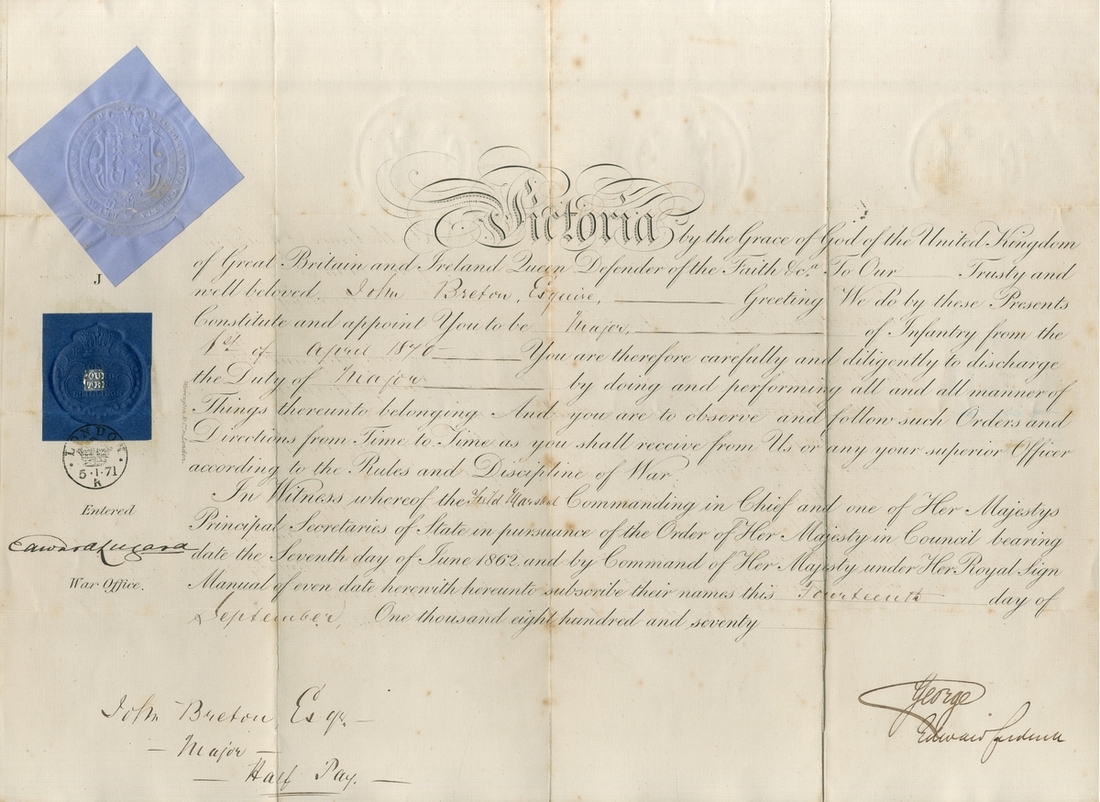 Victoria by the Grace of God of the United Kingdom
of Great Britain and Ireland Queen Defender of the Faith &c.a To Our Trusty and
well beloved John Breton, Esquire, Greeting We do by these Presents
Constitute and appoint You to be Major, of Infantry from the
1st of April 1870 You are therefore carefully and diligently to discharge
the Duty of Major by doing and performing all and all manner of
Things thereunto belonging And you are to observe and follow such Orders and
Directions from Time to Time as you shall receive from Us or any your superior Officer
according to the Rules and Discipline of War
In Witness whereof the Field Marshal Commanding in Chief and one of Her Majestys
Principal Secretaries of State in pursuance of the Order of Her Majesty in Council bearing
date the Seventh day of June 1862 and by Command of Her Majesty under Her Royal Sign
Manual of even date herewith hereunto subscribe their names this Fourteenth day of
September, One thousand eight hundred and seventy
J
LONDON
5·1·71
k
Entered
Edward Lugard
War Office.
George
Edward
John Breton, Esqr
Major
Half Pay.